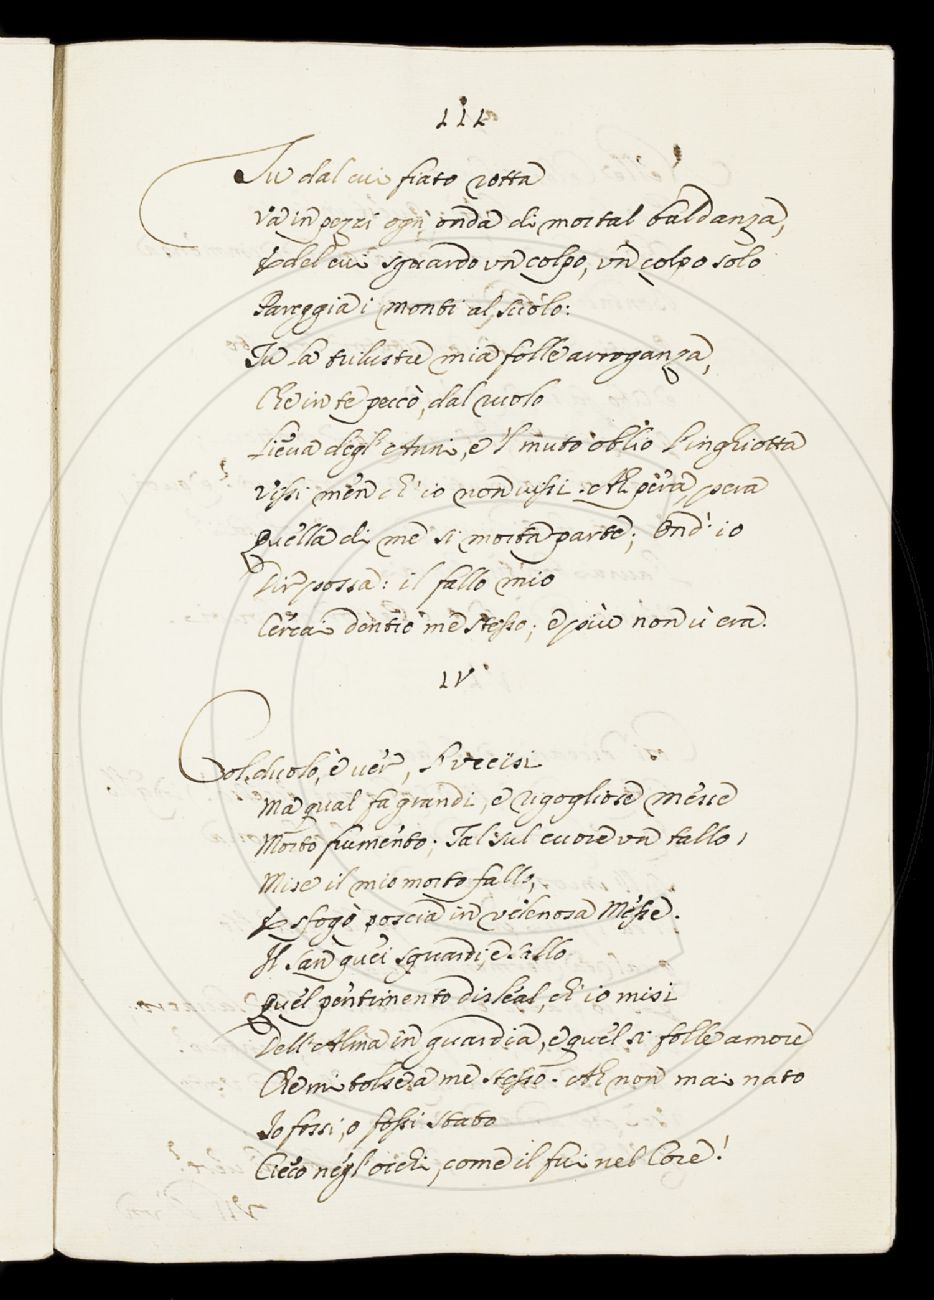 III
Tu dal cui fiato rotta
Và in pezzi ogn' onda di mortal baldanza,
E del cui sguardo un colpo, un colpo solo
Pareggia i monti al suolo:
Tu la mia folle arroganza,
Che in te peccò, dal ruolo
Lieva degl' Anni, e 'l muto oblio l'inghiotta
Vissi men ch' io non vissi. Ah pera pera
Quella di me si morta parte; Ond' io
Dir possa: il fallo mio
Cerca dentro me stesso; e più non v' era.
IV
Col duolo, è ver, l'uccisi
Ma qual fa grandi, e rigogliose messe
Morto frumento; Tal sul cuore un tallo,
Mise il mio morto fallo,
E sfogò poscia in velenosa Messe.
Il san quei sguardi, e sallo
Quel pentimento disleal, ch' io misi
Dell' Alma in guardia, e quel si folle amore
Che mi tolse a me stesso. Ah non mai nato
Io fossi, o fossi stato
Cieco negl' occhi, come il fui nel Core!